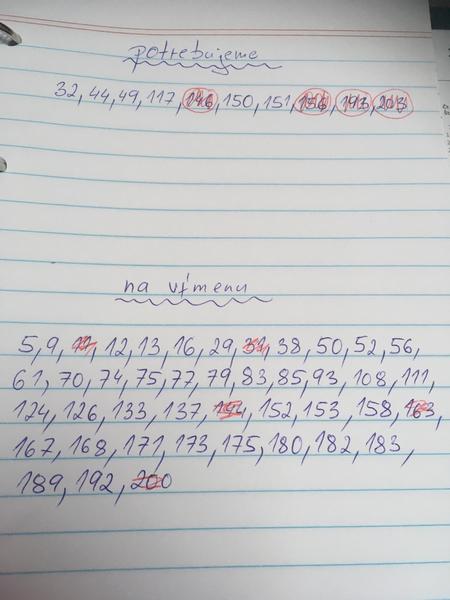 potrebujeme
32, 44, 49, 117, 146, 150, 151, 156, 193, 203
na výmenu
5, 9, 12, 13, 16, 29, 31, 38, 50, 52, 56,
61, 70, 74, 75, 77, 79, 83, 85, 93, 108, 111,
124, 126, 133, 137, 152, 153, 158, 163,
167, 168, 171, 173, 175, 180, 182, 183,
189, 192, 200